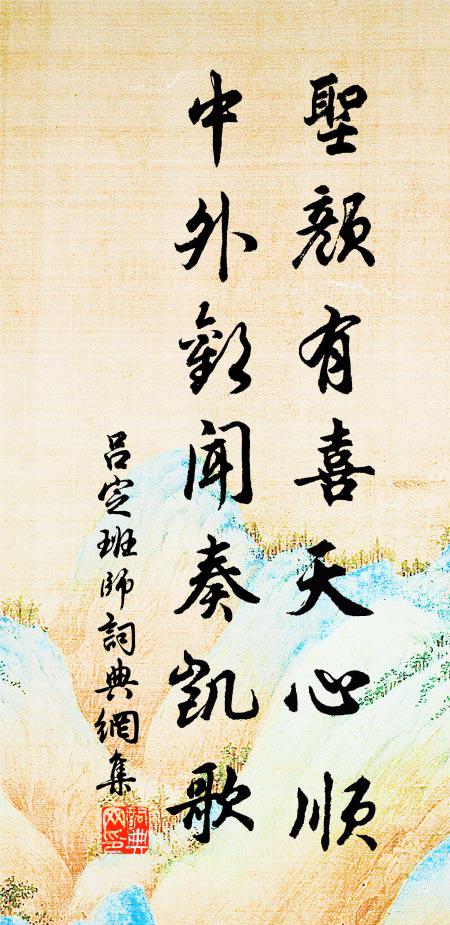 聖顏有喜天心順
中外歡聞奏凱歌
吕定班師詞典網集
詞典網印